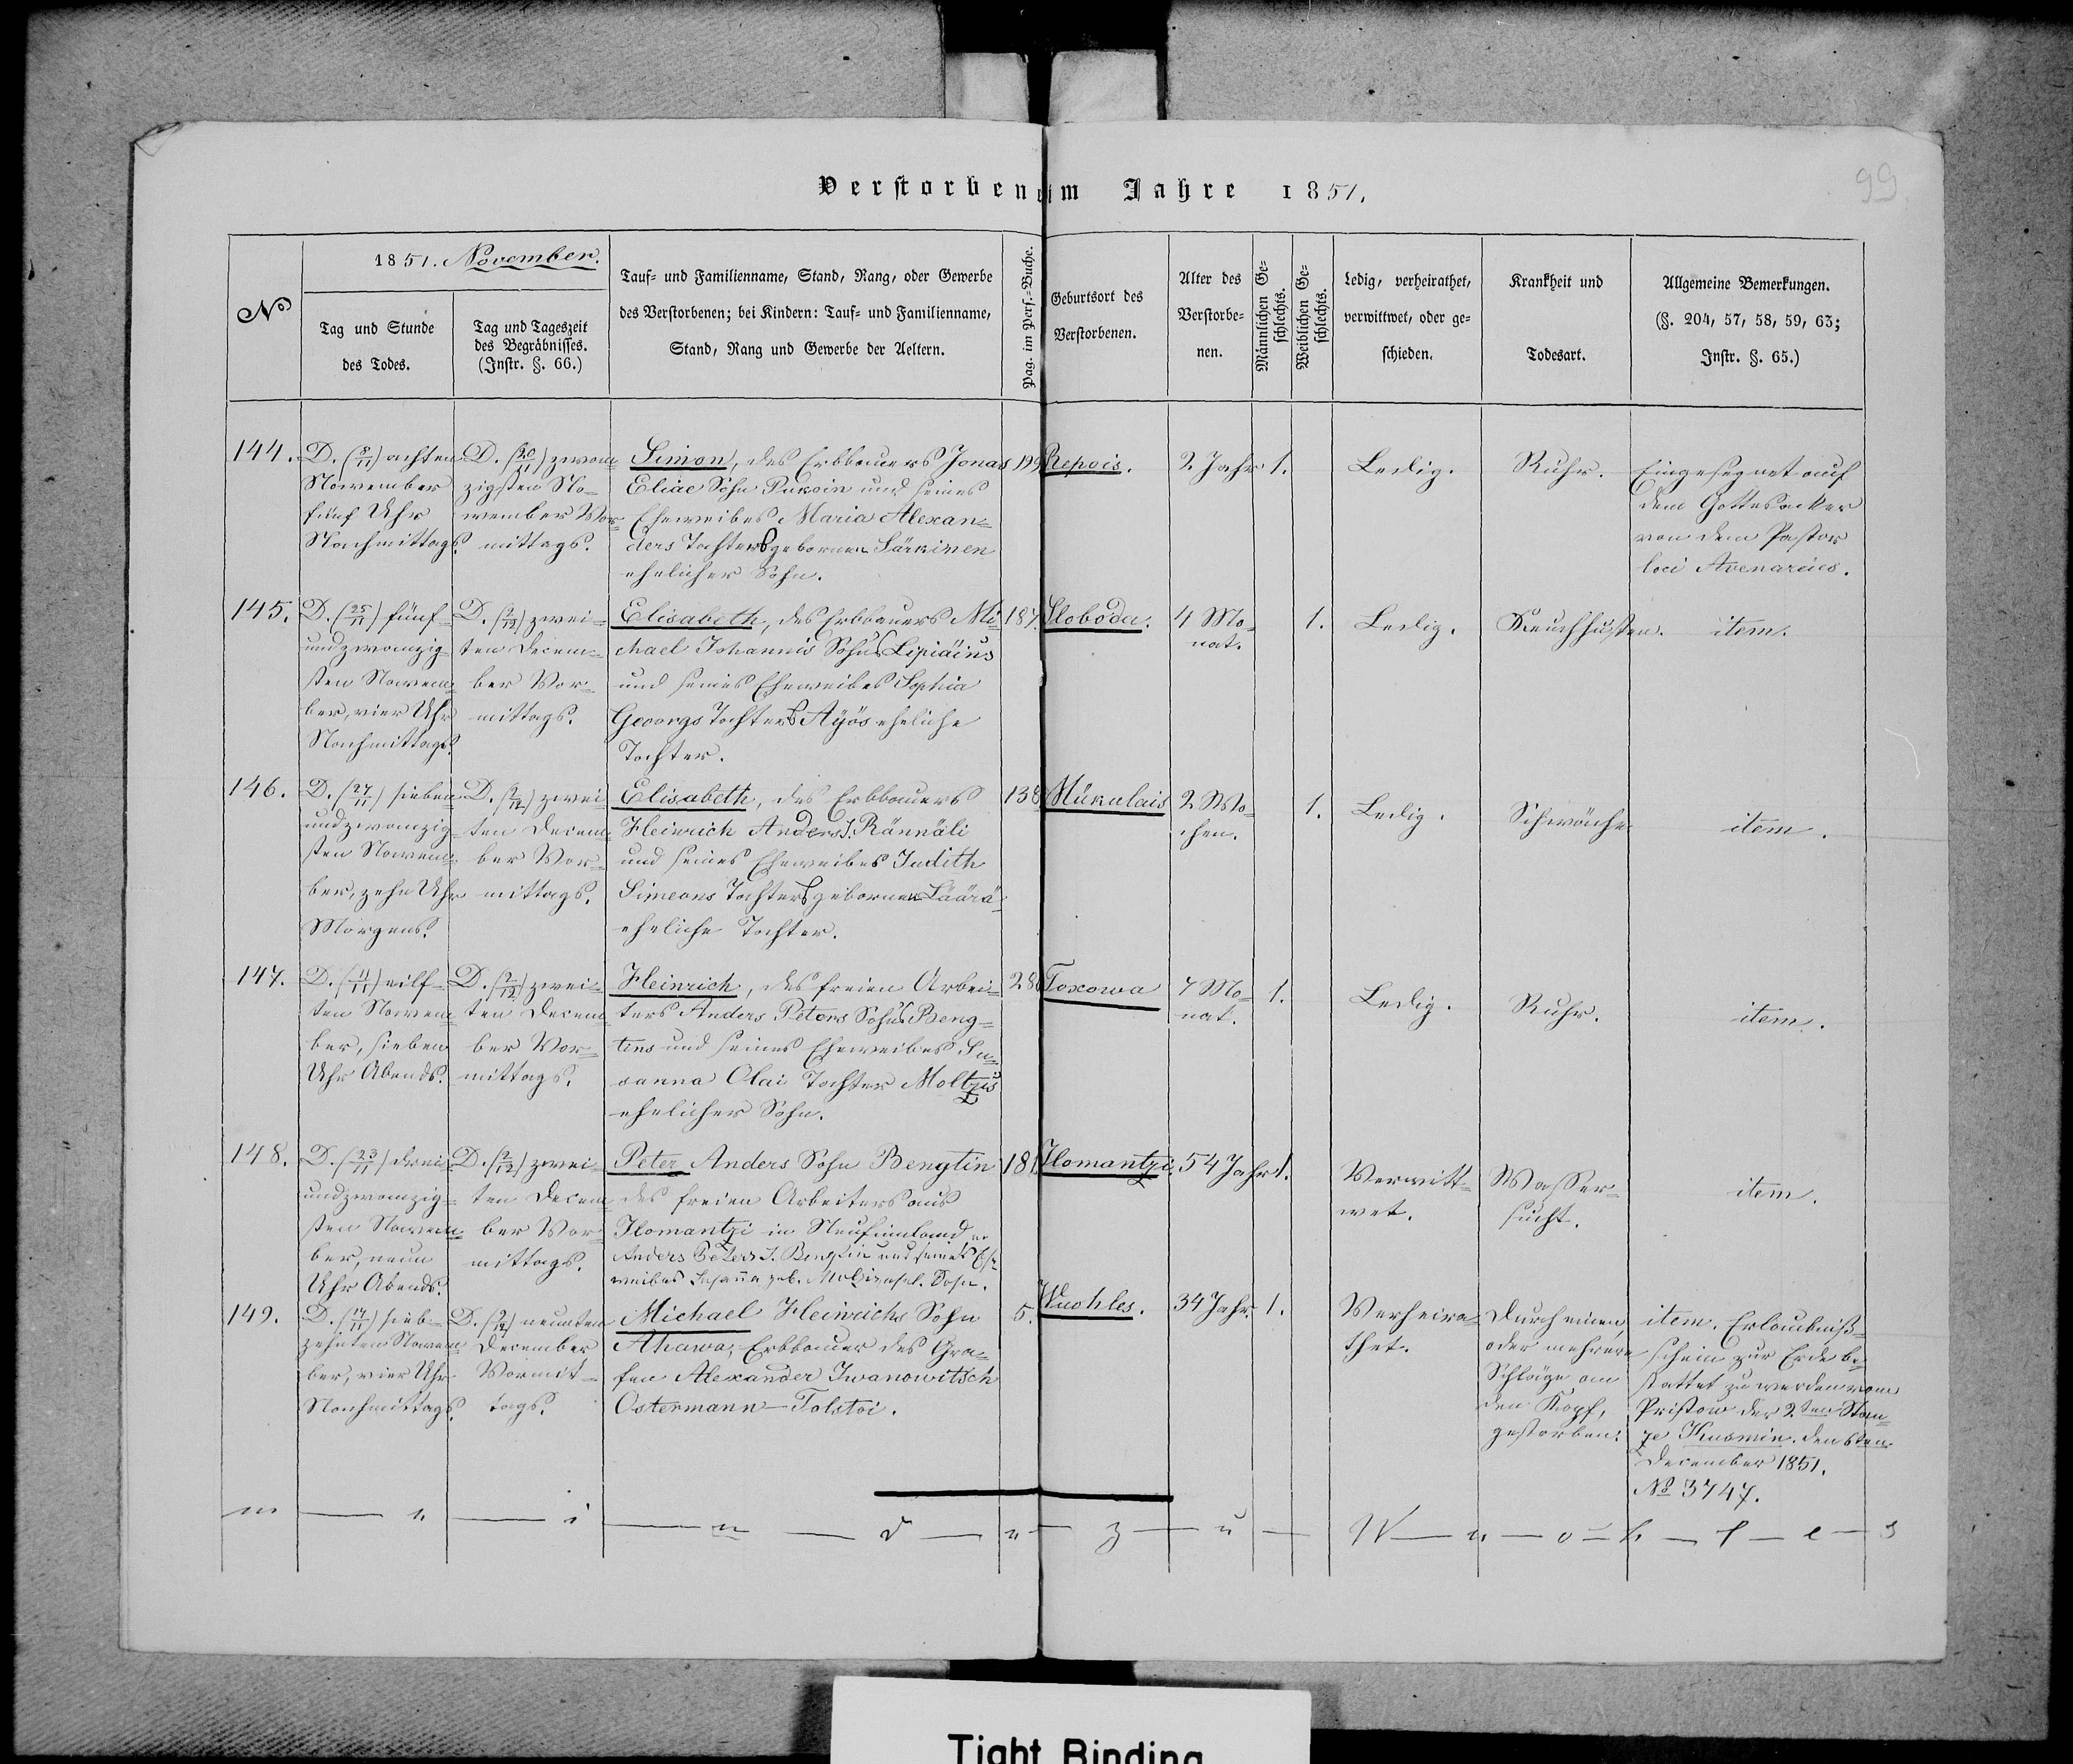 Verstorbene im Jahre 1851.
99
No
1851. November.
Tag und Stunde
des Todes.
Tag und Tageszeit
des Begräbnisses.
(Instr. §. 66.)
Tauf- und Familienname, Stand, Rang, oder Gewerbe
des Verstorbenen; bei Kindern: Tauf- und Familienname,
Stand, Rang und Gewerbe der Aeltern.
Pag. im Pers.-Buche.
Geburtsort des
Verstorbenen.
Alter des
Verstorbe-
nen.
Männlichen Ge-
schlechts.
Weiblichen Ge-
schlechts.
Ledig, verheirathet,
verwittwet, oder ge-
schieden.
Krankheit und
Todesart.
Allgemeine Bemerkungen.
(§. 204, 57, 58, 59, 63;
Instr. §. 65.)
144.
D. (8/11) achten
November
fünf Uhr
Nachmittags.
D. (20/11) zwan-
zigsten No-
vember Vor-
mittags.
Simon, des Erbbauers Jonas
Eliae Sohn Pukoin und seines
Eheweibes Maria Alexan-
ders Tochter geborner Särkinen
ehelicher Sohn.
Repois.
2 Jahr
1.
Ledig.
Ruhr.
Eingesegnet auf
dem Gottesacker
von dem Pastor
loci Avenarius.
145.
D. (25/11) fünf-
undzwanzig-
sten Novem-
ber, vier Uhr
Nachmittags.
D. (2/12) zwei-
ten Decem-
ber Vor-
mittags.
Elisabeth, des Erbbauers Mi-
chael Johannis Sohns Lipiäins
und seines Eheweibes Sophia
Georgs Tochter Äyös eheliche
Tochter.
187.
Sloboda.
4 Mo-
nat.
1.
Ledig.
Keuchhusten.
item.
146.
D. (27/11) sieben-
undzwanzig-
sten Novem-
ber, zehn Uhr
Morgens.
D. (2/12) zwei-
ten Decem-
ber Vor-
mittags.
Elisabeth, des Erbbauers
Heinrich Anders S. Rännäli
und seines Eheweibes Judith
Simeons Tochter geborner Läärä
eheliche Tochter.
138
Mükulais
2 Wo-
chen.
1.
Ledig.
Schwäche
item.
147.
D. (11/11) eilf-
ten Novem-
ber, sieben
Uhr Abends.
D. (2/12) zwei-
ten Decem-
ber Vor-
mittags.
Heinrich, des freien Arbei-
ters Anders Peters Sohns Beng-
tins und seines Eheweibes Su-
sanna Olai Tochter Moltzis
ehelicher Sohn.
28
Toxowa
7 Mo-
nat.
1.
Ledig.
Ruhr.
item.
148.
D. (23/11) drei-
undzwanzig-
sten Novem-
ber, neun
Uhr Abends.
D. (2/12) zwei-
ten Decem-
ber Vor-
mittags.
Peter Anders Sohn Bengtin
des freien Arbeiters aus
Ilomantzi in Neufinnland
Anders Peters S. Bengtin und seines Ehe-
weibes Susanna geb. ehel. Sohn.
181
Ilomantzi.
54 Jahr
1.
Verwitt-
wet.
Wasser-
sucht.
item.
149.
D. (17/11) sieb-
zehnten Novem-
ber, vier Uhr
Nachmittags.
D. (9/12) neunten
December
Vormit-
tags.
Michael Heinrichs Sohn
Ahawa, Erbbauer des Gra-
fen Alexander Iwanowitsch
Ostermann-Tolstoi.
5.
Wuohles.
34 Jahr.
1.
Verheira-
thet.
Durch einen,
oder mehrere
Schläge am
den Kopf,
gestorben.
item. Erlaubniß-
schein zur Erde be-
stattet zu werden vom
Pristow der 2ten Stan-
ge Kusmin. den 6ten
December 1851.
No 3747.
m — u — i — n — d — u — z — u — W — u — o — h — l — e — s
Tight Binding